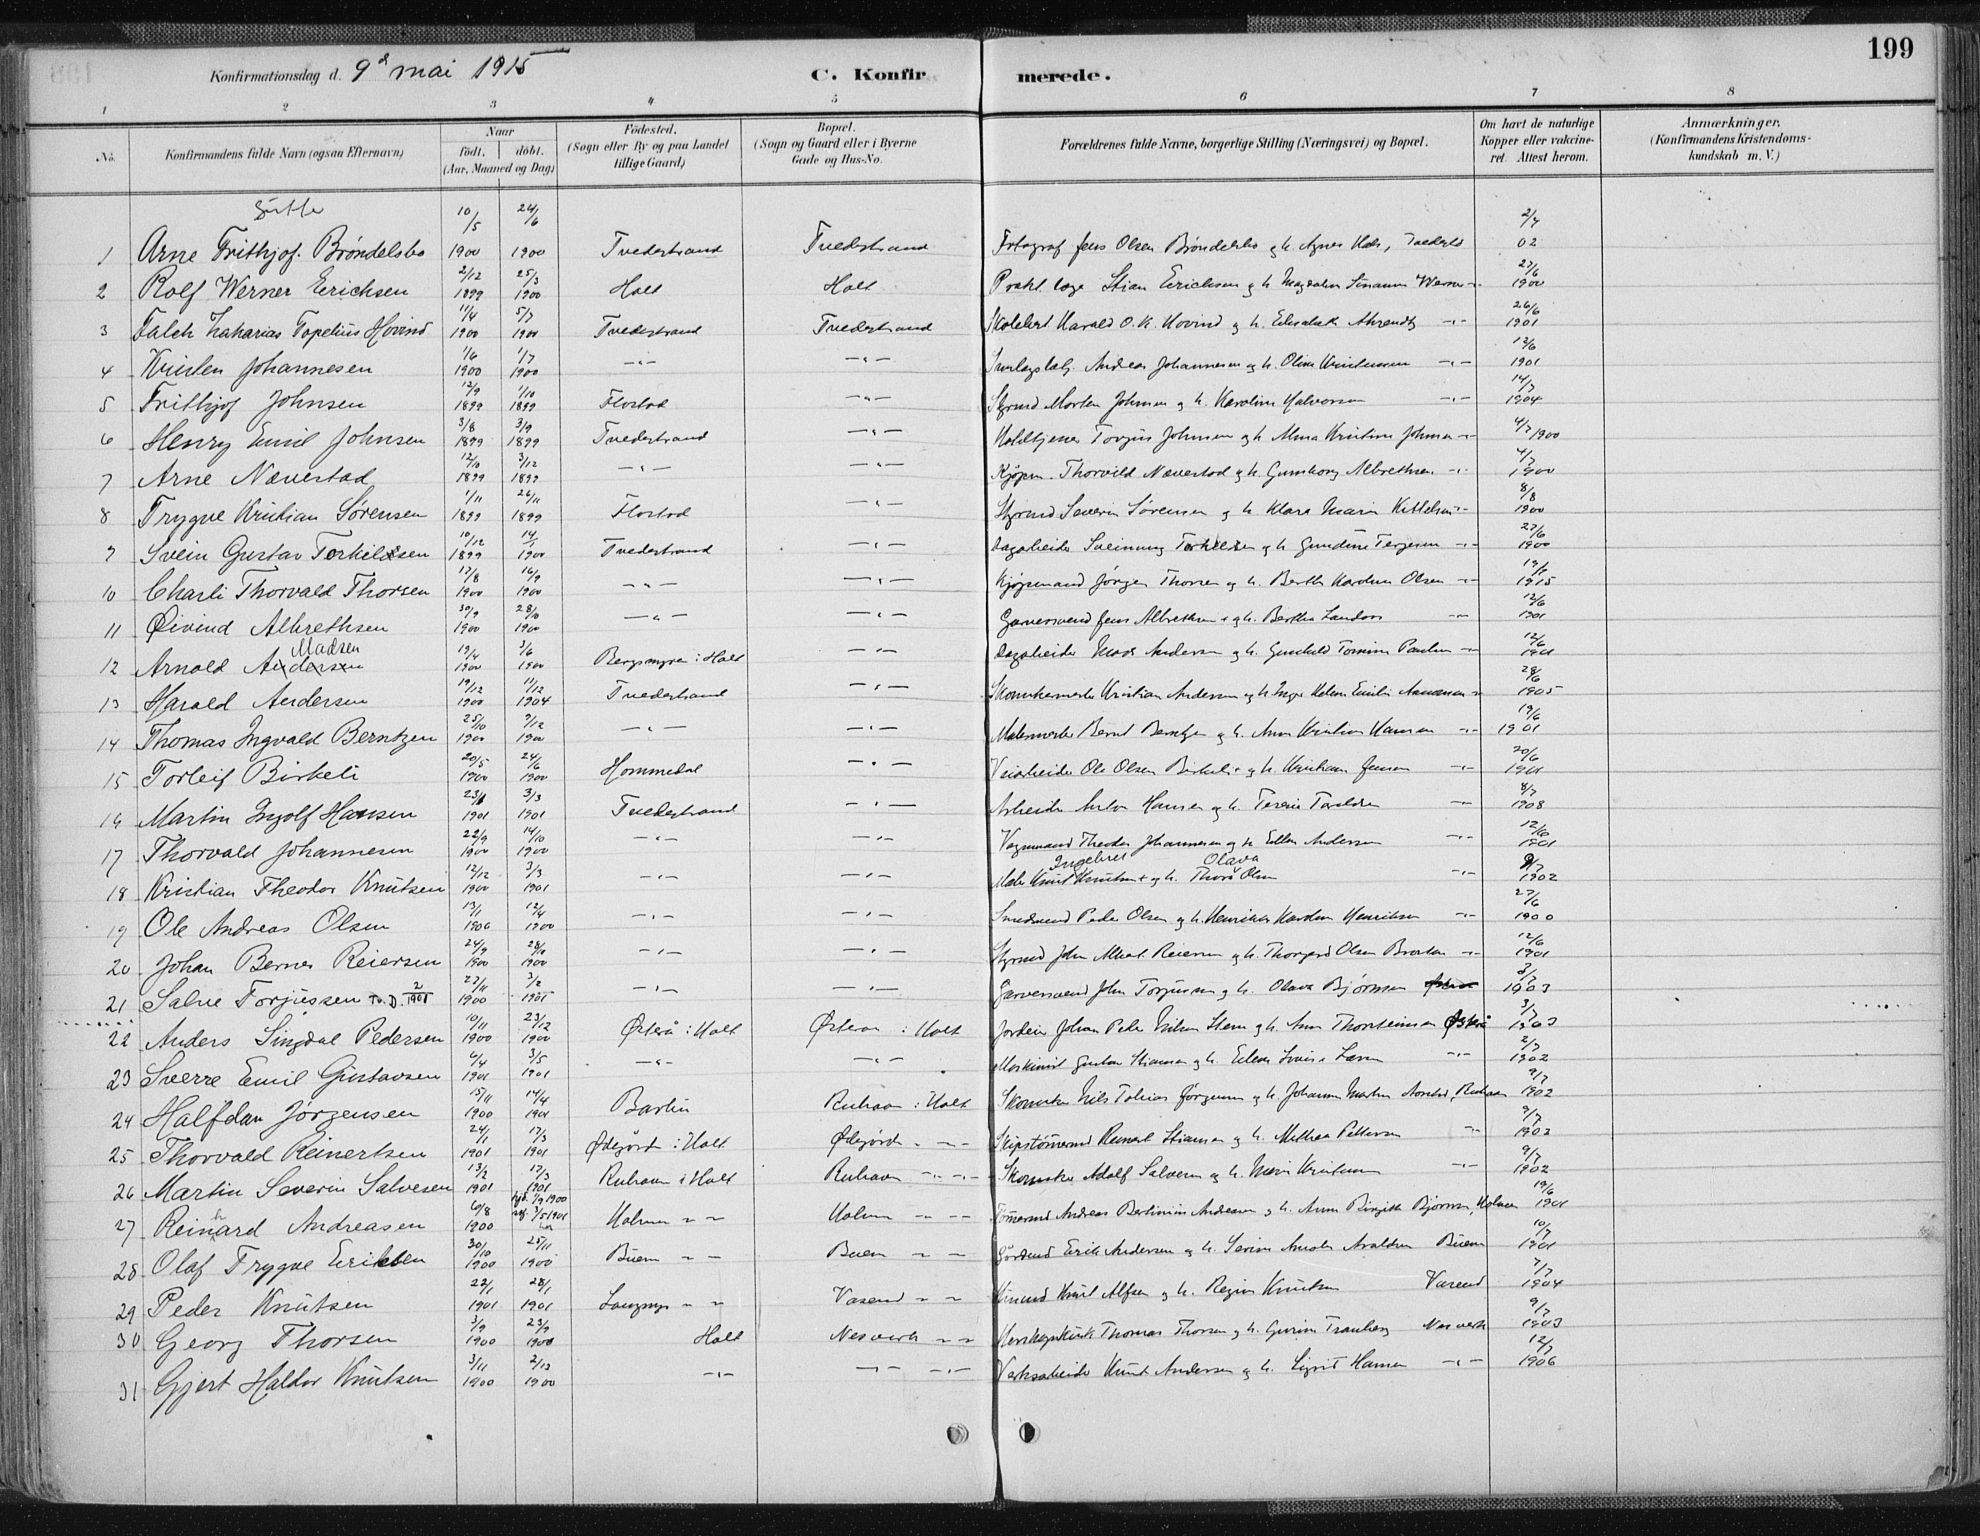 199
Konfirmationsdag d. 9d mai 1915 C. Konfirmerede.
1 2 3 4 5 6 7 8
No. Konfirmandens fulde Navn (ogsaa Efternavn) Naar födt. döbt. (Aar, Maaned og Dag) Födested. (Sogn eller By og paa Landet tillige Gaard) Bopæl. (Sogn og Gaard eller i Byerne Gade og Hus-No. Forældrenes fulde Navne, borgerlige Stilling (Næringsvei) og Bopæl. Om havt de naturlige Kopper eller vakcineret. Attest herom. Anmærkninger. (Konfirmandens Kristendomskundskab m. V.)
Gutte
1 Arne Frithjof Brøndelsbo 10/5 1900 24/6 1900 Tvedestrand Tvedestrand Fotograf Jens Olsen Brøndelsbo og h. Agnes 2/7 02
2 Rolf Werner Erichsen 2/12 1899 25/3 1900 Holt Holt Prakt. læge Stian Erichsen og h. Magdalene Werner -"- 27/6 1900
3 Falch Zakarias Topelius Hovind 11/4 1900 5/7 1900 Tvedestrand Tvedestrand Harald O. K. Hovind og h. Elisabeth Ahrendtz -"- 26/6 1901
4 Kristen Johannesen 1/6 1900 1/7 1900 -"- -"- Andreas Johannesen og h. Oline Kristensen -"- 12/6 1901
5 Frithjof Johnsen 12/9 1899 1/10 1899 Flostad -"- Styrmd Morten Johnsen og h. Karoline Halvorsen -"- 14/7 1904
6 Henry Emil Johnsen 3/8 1899 3/9 1899 Tvedestrand -"- Torjus Johnsen og h. Alma Kristine Johnsen -"- 4/7 1900
7 Arne Nævestad 12/10 1899 3/12 1899 -"- -"- Kjøpm. Thorvild Nævestad og h. Gunborg Albrethsen -"- 4/7 1900
8 Trygve Kristian Sørensen 1/11 1899 26/11 1899 Flostad -"- Styrmd Severin Sørensen og h. Klara Marie Kittelsen -"- 8/8 1900
9 Svein Gustav Terkildsen 10/12 1899 14/1 1900 Tvedestrand -"- Dagarbeider Sveinung Terkildsen og h. Gundine Terjesen -"- 27/6 1900
10 Charli Thorvald Thorsen 17/8 1900 16/9 1900 -"- -"- Kjøpmand Jørgen Thorsen og h. Berthe Karoline Olsen -"- 1915
11 Øivind Albrethsen 30/9 1900 28/10 1900 -"- -"- Garversvend Jens Albrethsen og h. Bertha Landaas -"- 12/6 1901
12 Arnold Andersen Madsen 19/4 1900 3/6 1900 Bergsmyren i Holt -"- Dagarbeider Mads Andersen og h. Gunhild Tomine Paulsen -"- 12/6 1901
13 Harald Andersen 19/12 1900 11/12 1904 Tvedestrand -"- Skomakermester Kristian Andersen og h. Inger Helene Emilie -"- 28/6 1905
14 Thomas Ingvald Berntzen 25/10 1900 9/12 1900 -"- -"- Malermester Bernt Berntzen og h. Anne Kristine Hansen -"- 19/6 1901
15 Torleif Birkeli 20/5 1900 24/6 1900 Hommedal -"- Veiarbeider Ole Olsen Birkeli og h. Kristiane Jensen -"- 20/6 1901
16 Martin Ingolf Hansen 23/1 1901 3/3 1901 Tvedestrand -"- Arbeider Anton Hansen og h. Terese -"- 8/7 1908
17 Thorvald Johannesen 22/9 1900 14/10 1900 -"- -"- Vognmand Theodor Johannesen og h. Ellen Andersen -"- 12/6 1901
18 Kristian Theodor Knutsen 12/12 1900 3/3 1901 -"- -"- Maler Knut Ingebret Knutsen og h. Thora Olava Olsen -"- 9/7 1902
19 Ole Andreas Olsen 13/1 1900 12/4 1900 -"- -"- Smedsvend Peder Olsen og h. Henrikke Karoline Henriksen -"- 27/6 1900
20 Johan Bernes Reiersen 24/9 1900 28/10 1900 -"- -"- Styrmd John Albert Reiersen og h. Thorgerd Olsen -"- 12/6 1901
21 Salve Torjussen Tv. D. 2/1901 27/11 1900 3/2 1901 -"- -"- Garversvend John Torjussen og h. Olava Bjørnsen 3/7 1903
22 Anders Lingdal Pedersen 10/11 1900 23/12 1900 Østerå i Holt Østeraa i Holt Johan Peder og h. Anne Thorsteinsen Østerå 3/7 1903
23 Sverre Emil Gustavsen 6/4 1901 3/5 1901 -"- -"- Maskinist Gustav Stiansen og h. Larsen -"- 2/7 1902
24 Halfdan Jørgensen 15/11 1900 14/4 1901 Barbu Ruhavn i Holt Skomaker Nils Tobias Jørgensen og h. Johanne Ruhavn 9/7 1902
25 Thorvald Reinertsen 24/1 1901 17/3 1901 Ødegård i Holt Ødegård -"- Skipstømmermd Reinert Stiansen og h. Mathea Pettersen -"- 9/7 1902
26 Martin Severin Salvesen 13/2 1901 17/3 1901 Ruhavn i Holt Ruhavn -"- Skomaker Adolf Salvesen og h. Marie Kristensen -"- 9/7 1902
27 Reinhard Andreasen 6/8 1900 hjd. 1/9 1900 3/5 1901 Holmen -"- Holmen -"- Tømmermd Andreas Bertinius Andreasen og h. Anne Birgitte Bjørnsen, Holmen 19/6 1901
28 Olaf Trygve Eriksen 30/10 1900 25/11 1900 Buen -"- Buen -"- Erik Andersen og h. Serine Buen 10/7 1901
29 Peder Knutsen 22/1 1901 28/1 1901 Langmyr -"- Vasend -"- Knut Alfsen og h. Regine Knutsen Vasend 7/7 1904
30 Georg Thorsen 3/9 1900 23/9 1900 Holt Nesverk -"- Thomas Thorsen og h. Gurine Tranberg Nesverk 9/7 1903
31 Gjert Haldor Knutsen 3/11 1900 2/12 1900 -"- -"- Verksarbeider Knut Andersen og h. Sigrid Hansen -"- 12/7 1906